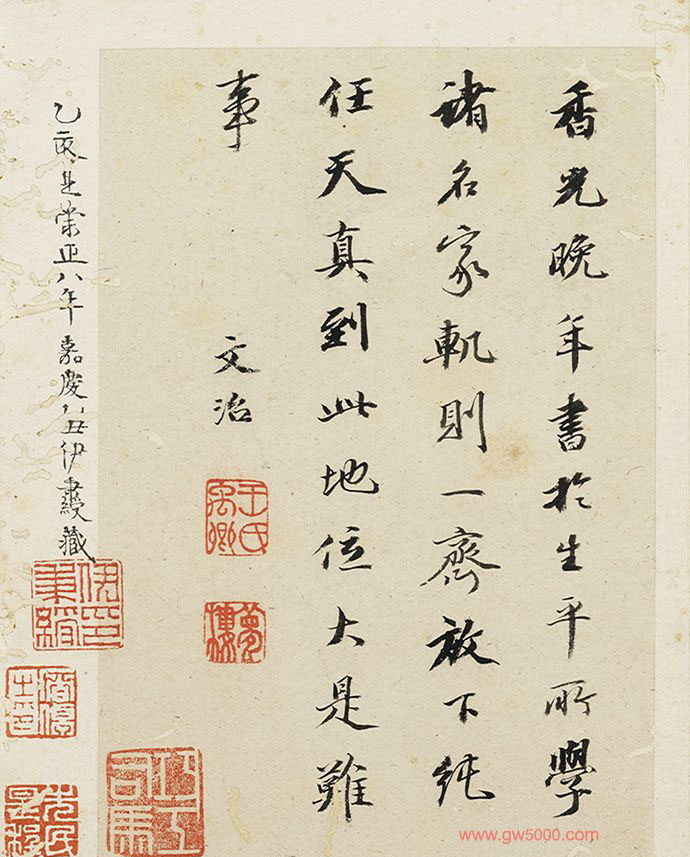 香光晚年書於生平所學
諸名家軌則一齊放下純
任天真到此地位大是難
事
文治
王氏禹卿
夢樓
乙亥是崇正八年 嘉慶乙丑伊秉綬藏
伊印秉綬
www.gw5000.com